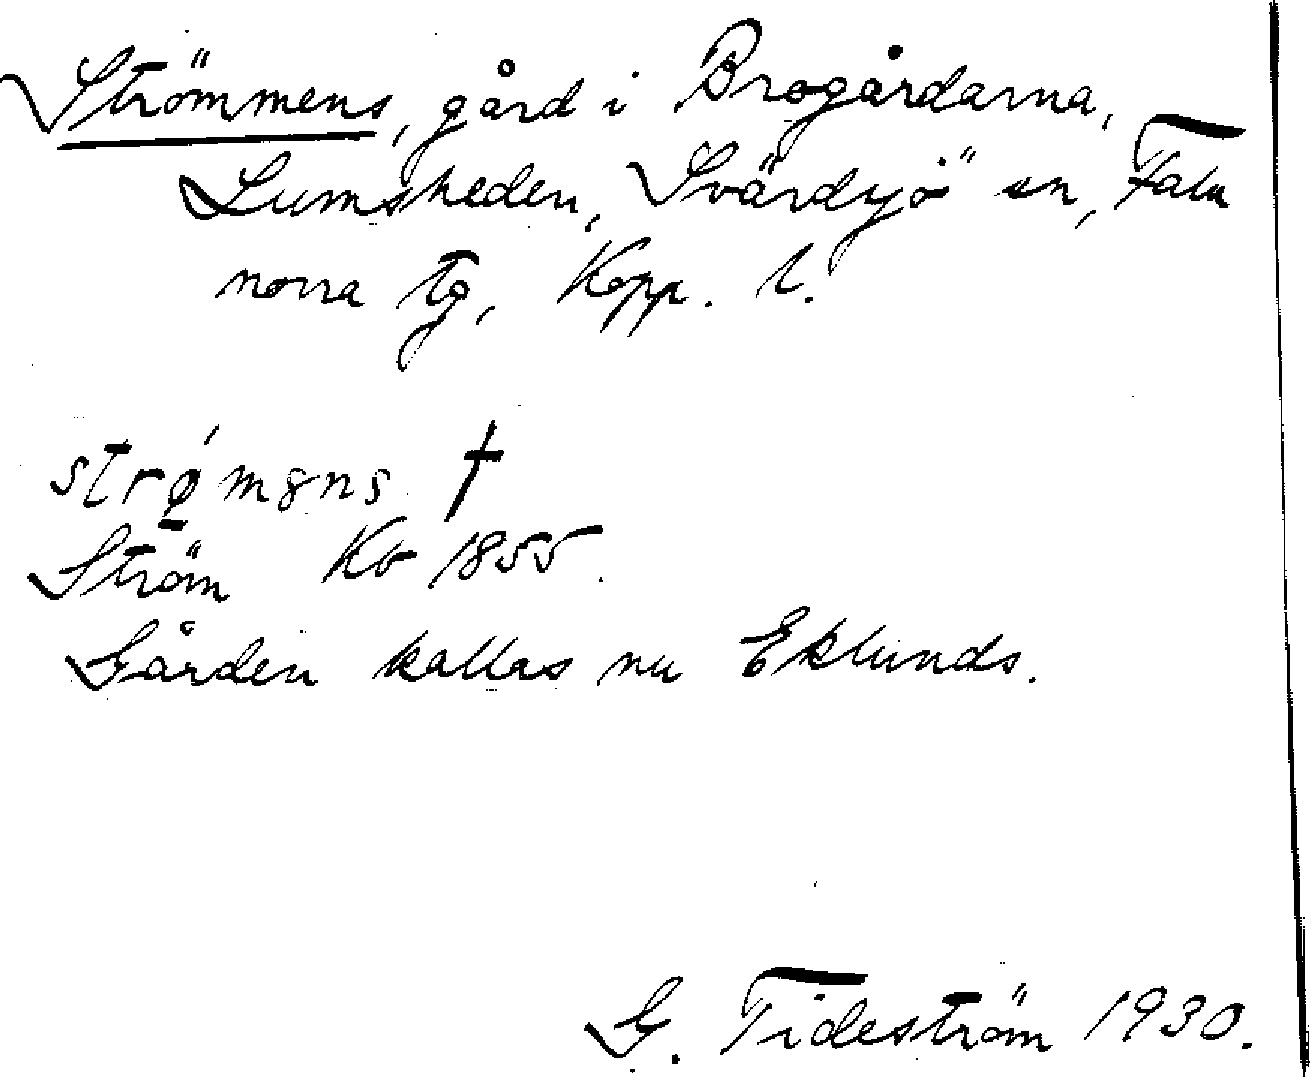 Strömmens, gård i Brogårdarna,
Lumsheden, Svärdsjö sn, Falu
norra tg, Kopp. l.
strǿ̠məns †
Ström Kb 1855.
Gården kallas nu Eklunds.
G. Tideström 1930.